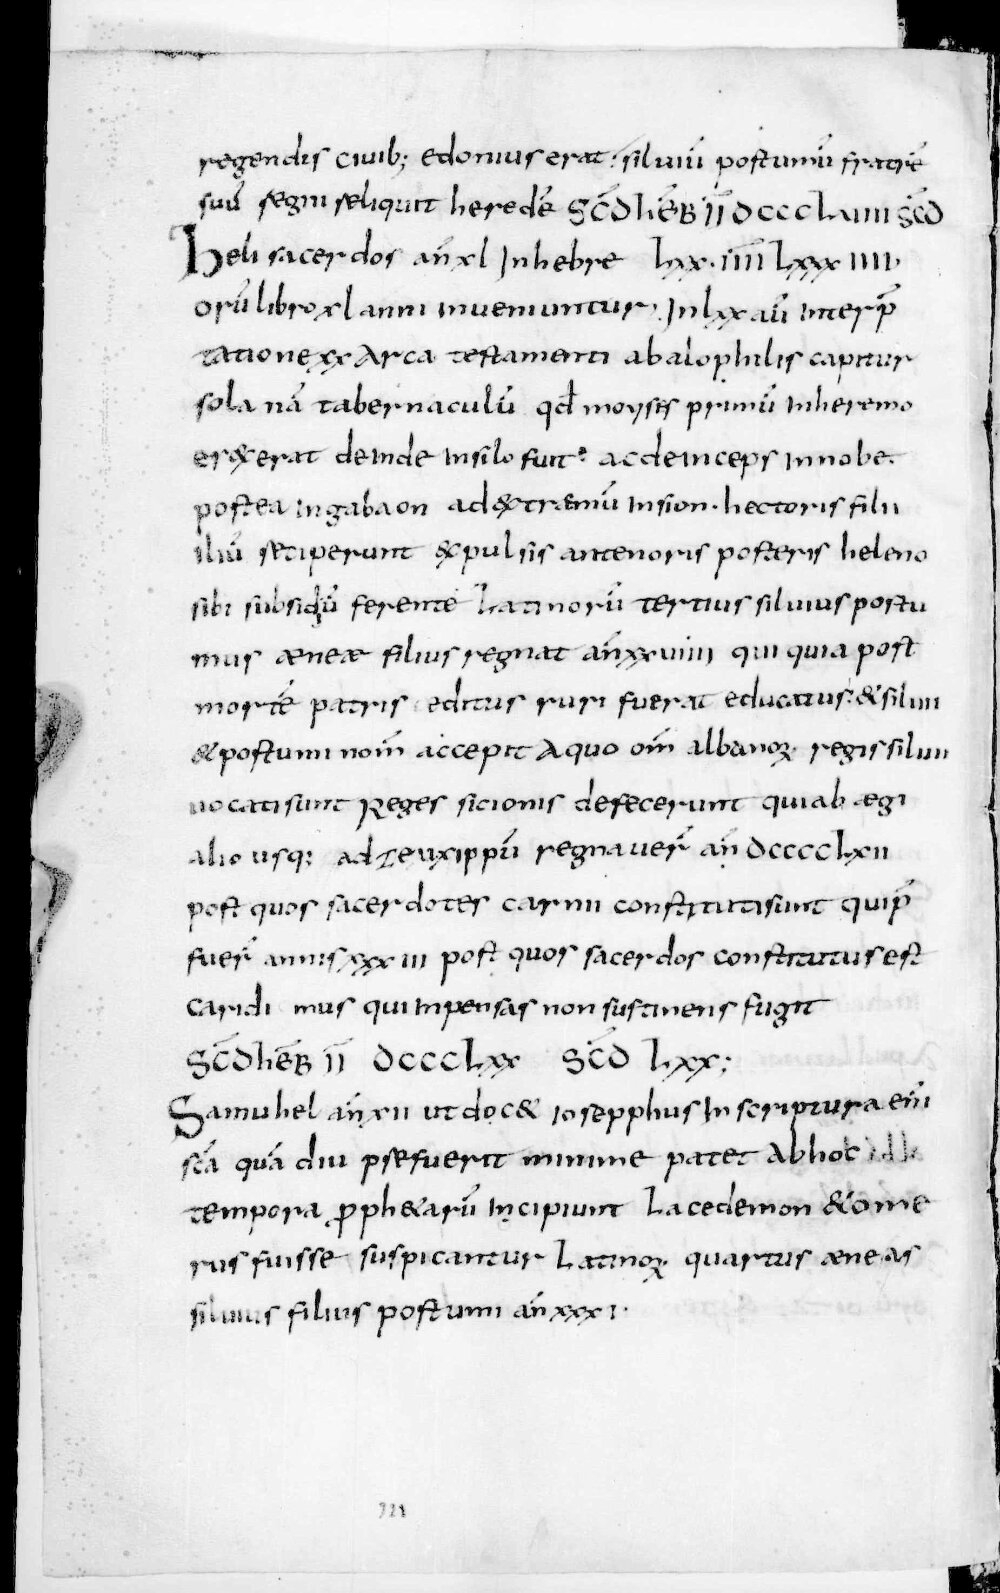 regendis ciuib; edonius erat. siluiū postumū fratrē
suū regni reliquit heredē SC̄D hĒB ĪĪ DCCCLuiiii SC̄D
heli sacerdos an̄ xl In hebre Lxx. īīīī Lxxx iiii.
orū libro xl anni inueniuntur. In lxx aū interp̄
tatione xx Arca testamenti ab alophilis capitur
sola nā tabernaculū qd̄ moyses primū in heremo
er&erat deinde in silo fuit. ac deinceps in nobe.
postea in gabaon ad &tremū in sion. hectoris filii
iliū receperunt &pulsis antenoris posteris heleno
sibi subsidiū ferente Latinorū tertius siluius postu
mus æneæ filius regnat an̄ xxuiiii qui quia post
mortē patris editus ruri fuerat educatus. & siluii
& postumi nom̄ accepit A quo om̄ albanoꝝ regis siluii
uocati sunt Reges sicionis defecerunt qui ab ægi
alio usq; ad zeuxippū regnauer̄ an̄ DCCCCLxii
post quos sacerdotes carnii constituti sunt qui p̄
fuer̄ annis xxxiii post quos sacerdos constitutus est
caridi mus qui inpensas non sustinens fugit
SC̄D hĒB ĪĪ DCCCLxx SC̄D Lxx;
Samuhel an̄ xii ut doc& iosepphus In scriptura eni͞
scā quā diu prefuerit minime patet Ab hoc
tempora, ꝓph&arū Incipiunt Lacedemon & ome
rus fuisse suspicantur Latinoꝝ quartus æneas
siluius filius postumi an̄ xxxi.
321